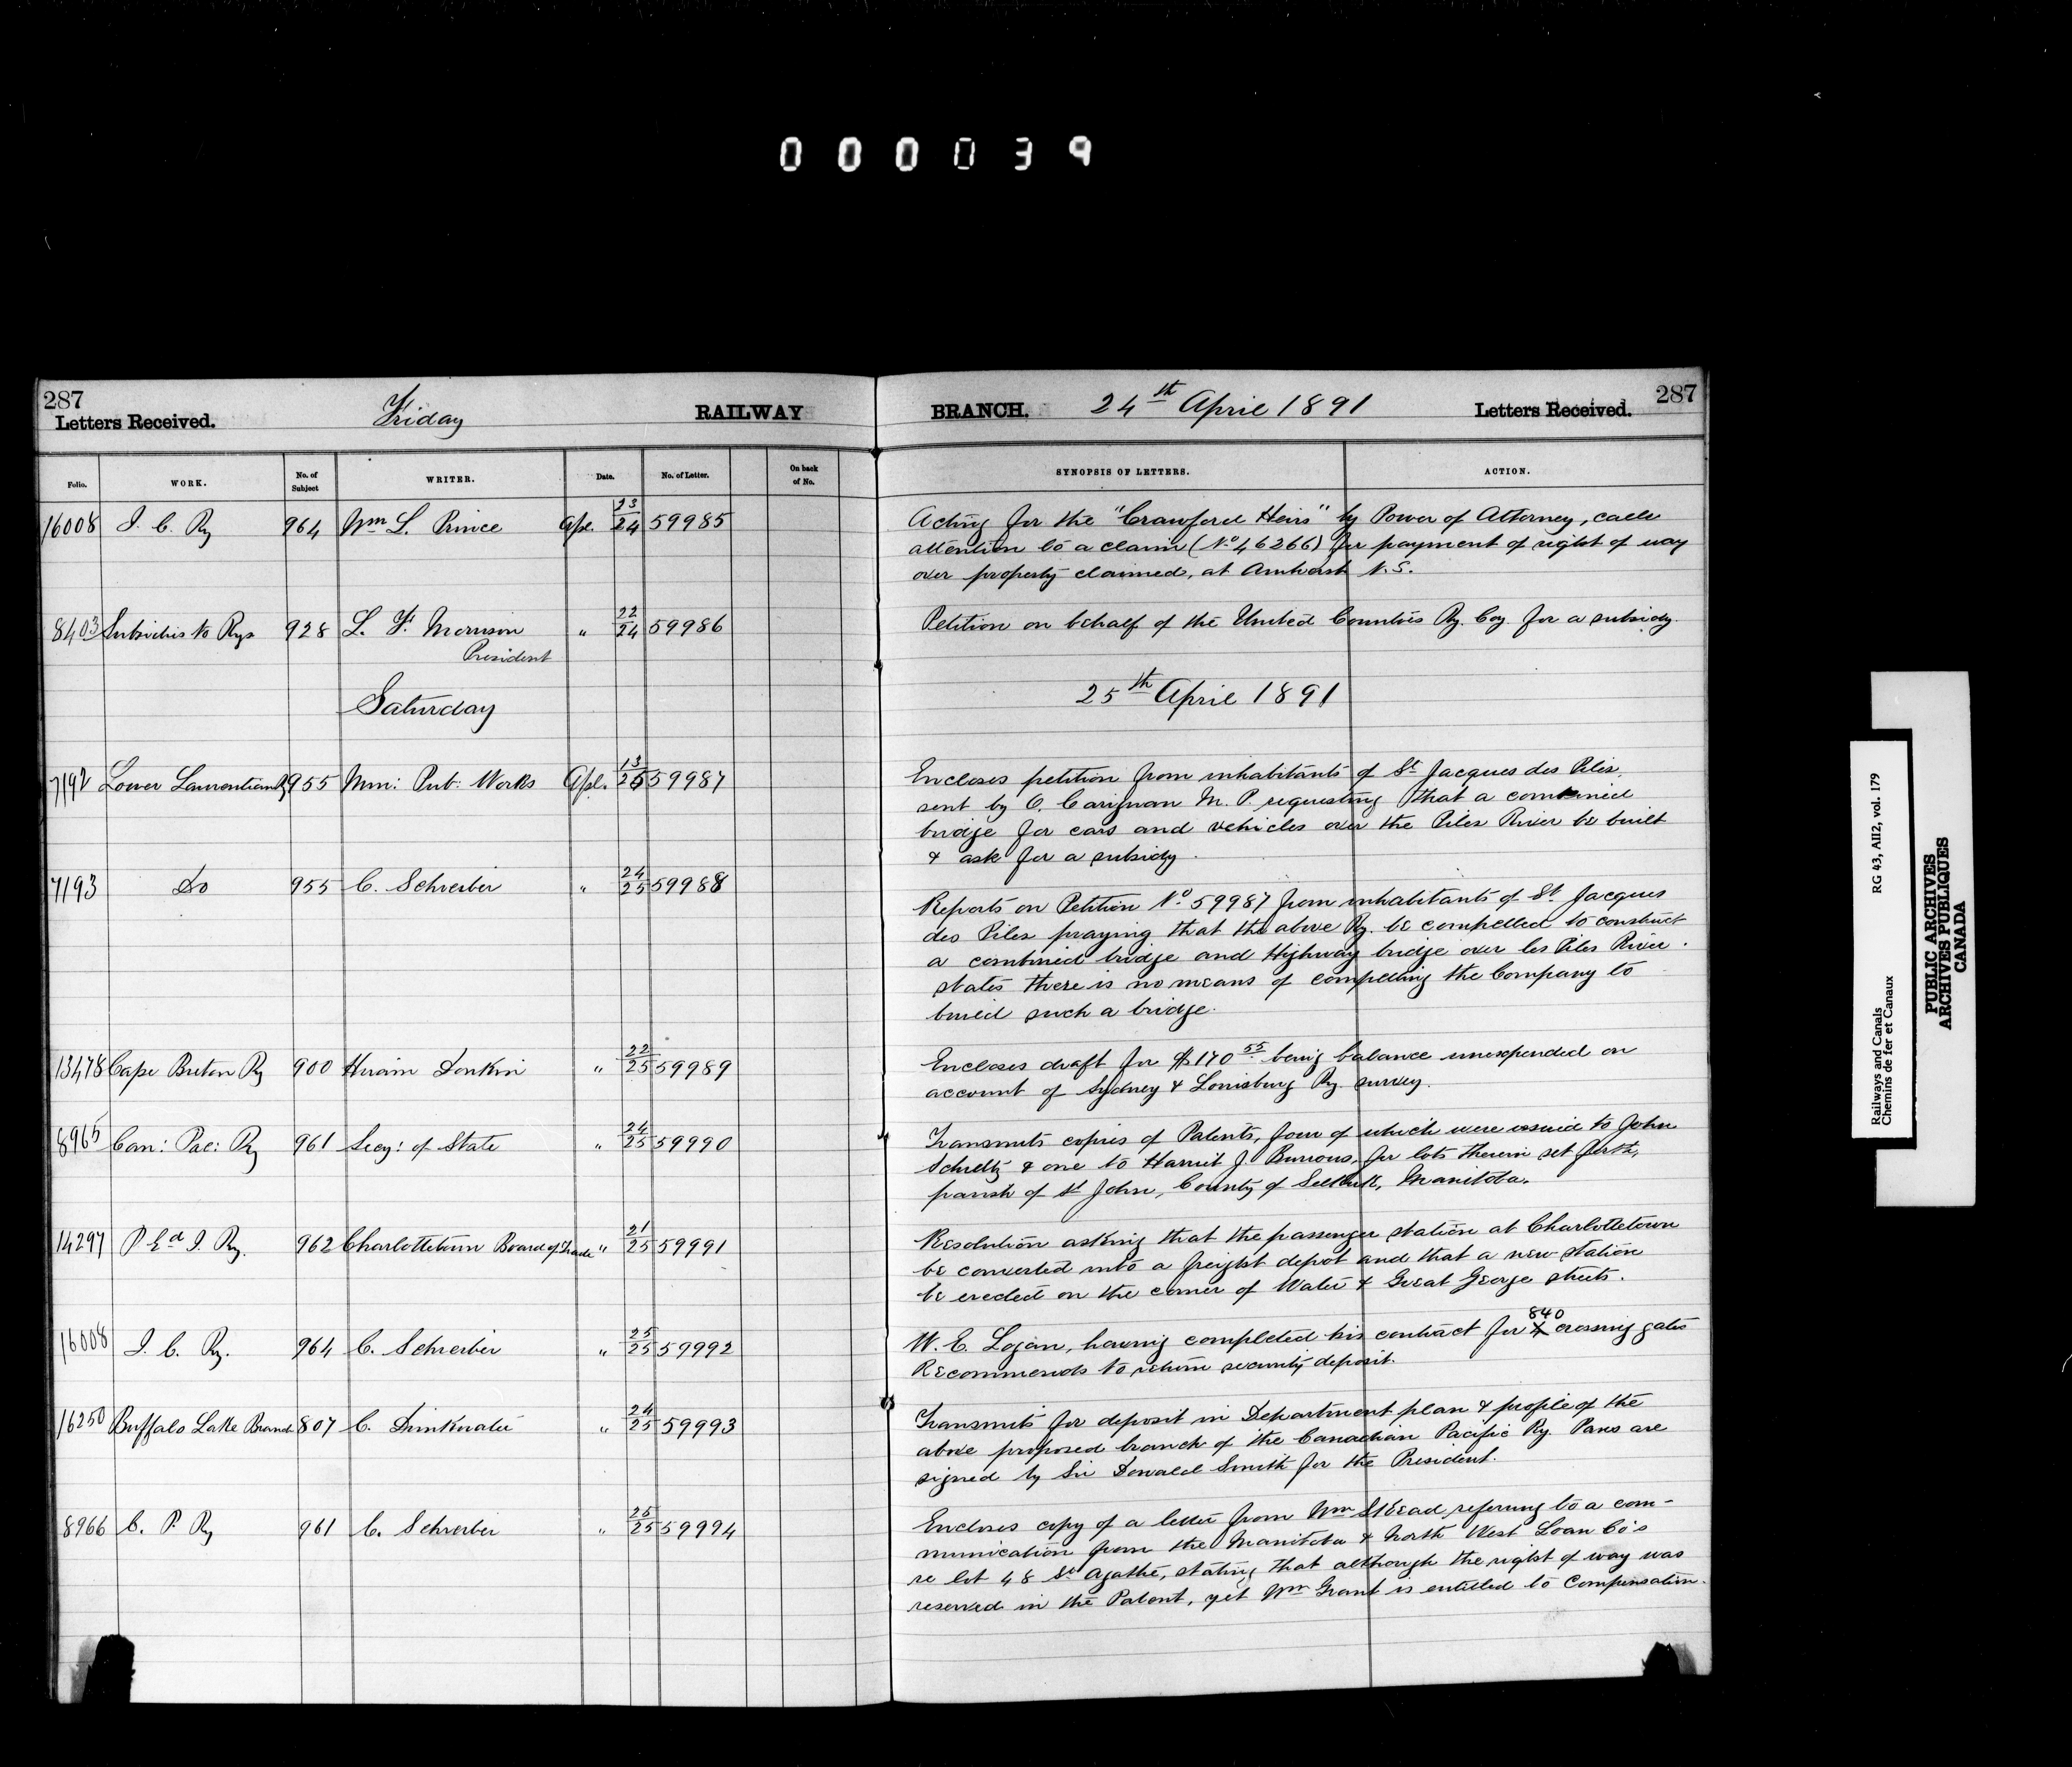 000039
287
Letters Received.
Friday
RAILWAY
BRANCH.
24th April 1891
Letters Received.
287
Folio.
WORK.
No. of Subject
WRITER.
Date.
No. of Letter.
On back of No.
SYNOPSIS OF LETTERS.
ACTION.
16008 I. C. Ry 964 Wm L. Prince Apl. 23/24 59985
Acting for the "Crawford Heirs" by Power of Attorney, calls
attention to a claim (No 46266) for payment of right of way
over property claimed, at Amherst N.S.
8403 Subsidies to Rys 928 L. F. Morrison " 22/24 59986
President
Petition on behalf of the United Counties Ry. Coy. for a subsidy.
Saturday
25th April 1891
7192 Lower Laurentian Ry 955 Min: Pub: Works Apl. 13/25 59987
Encloses petition from inhabitants of St Jacques des Piles,
sent by O. Carignan M. P. requesting that a combined
bridge for cars and vehicles over the Piles River be built
& ask for a subsidy.
7193 Do 955 C. Schreiber " 24/25 59988
Reports on Petition No 59987 from inhabitants of St. Jacques
des Piles praying that the above Ry. be compelled to construct
a combined bridge and Highway bridge over les Piles River.
states there is no means of compelling the Company to
build such a bridge.
13478 Cape Breton Ry 900 Hiram Donkin " 22/25 59989
Encloses draft for $170 55 being balance unexpended on
account of Sydney & Louisburg Ry. survey.
8965 Can: Pac: Ry 961 Secy: of State " 24/25 59990
Transmits copies of Patents, four of which were issued to John
Schultz & one to Harriet J. Burrows, for lots therein set forth,
parish of St John, County of Selkirk, Manitoba.
14297 P Ed I. Ry. 962 Charlottetown Board of Trade " 21/25 59991
Resolution asking that the passenger station at Charlottetown
be converted into a freight depot and that a new station
be erected on the corner of Water & Great George streets.
16008 I. C. Ry. 964 C. Schreiber " 25/25 59992
840
W. E. Logan, having completed his contract for 4 crossing gates
Recommends to return security deposit.
16250 Buffalo Lake Branch 807 C. Drinkwater " 24/25 59993
Transmits for deposit in Department plan & profile of the
above proposed branch of the Canadian Pacific Ry. Plans are
signed by Sir Donald Smith for the President.
8966 C. P. Ry 961 C. Schreiber " 25/25 59994
Encloses copy of a letter from Wm Stead, referring to a com-
munication from the Manitoba & North West Loan Co's
re lot 48 St Agathe, stating that although the right of way was
reserved in the Patent, yet Wm Grant is entitled to Compensation.
Railways and Canals RG 43, AII2, vol. 179
Chemins de fer et Canaux
PUBLIC ARCHIVES
ARCHIVES PUBLIQUES
CANADA